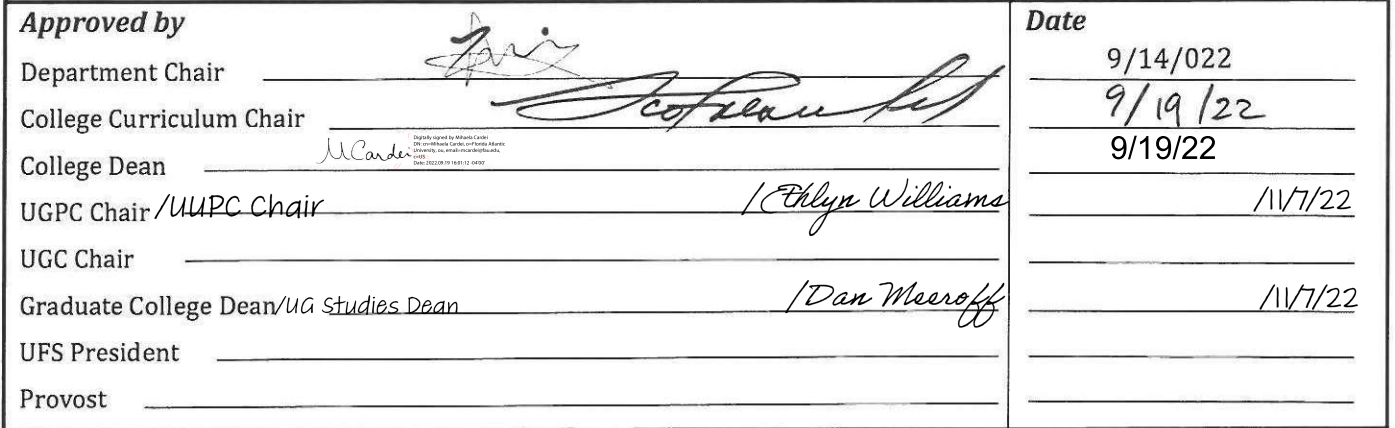 Approved by Date
Department Chair 9/14/022
College Curriculum Chair 9/19/22
MCardei Digitally signed by Mihaela Cardei
DN: cn=Mihaela Cardei, o=Florida Atlantic
University, ou, email=mcardei@fau.edu,
c=US
Date: 2022.09.19 16:01:12 -04'00'
College Dean 9/19/22
UGPC Chair /UUPC Chair /Ethlyn Williams /11/7/22
UGC Chair
Graduate College Dean/UG Studies Dean /Dan Meeroff /11/7/22
UFS President
Provost